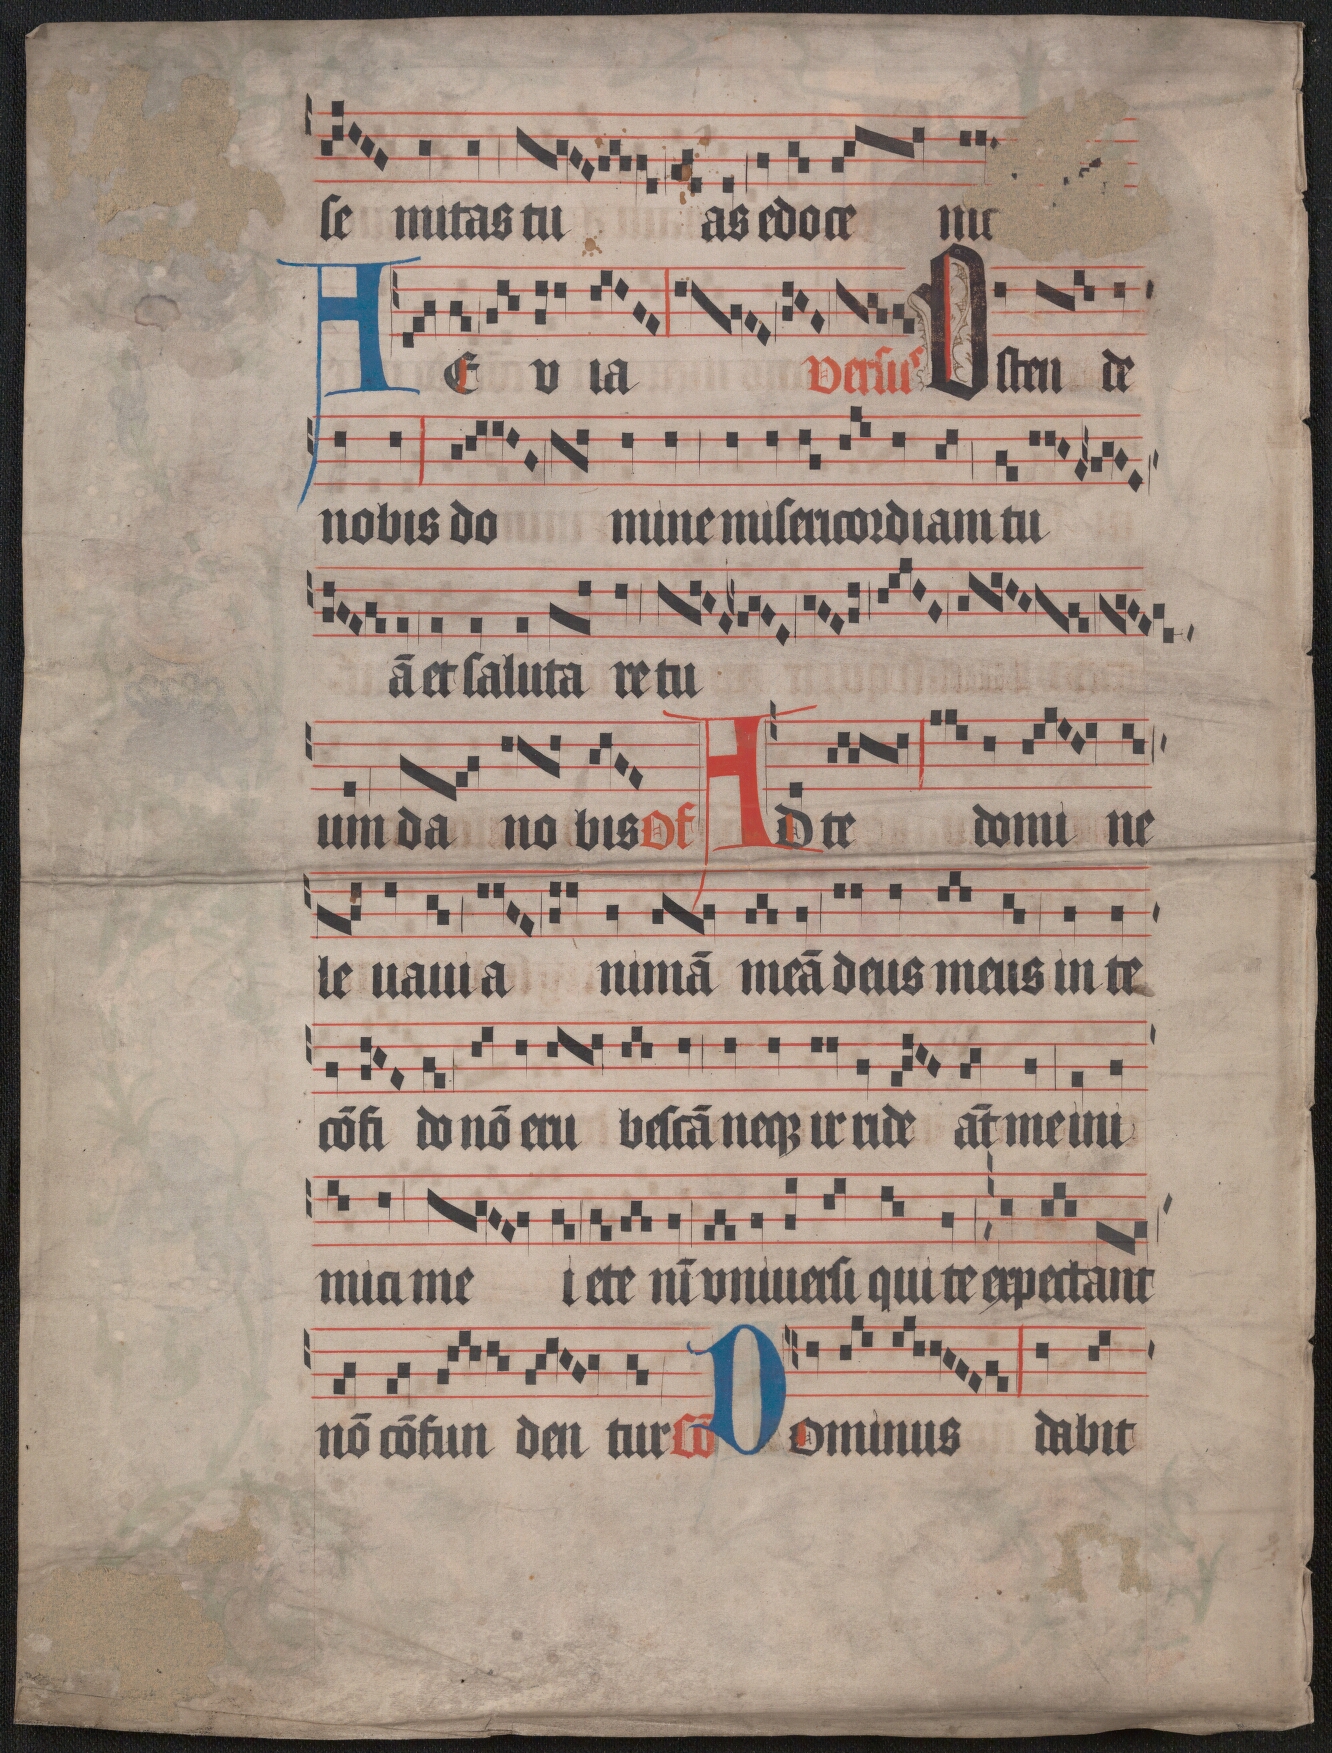 se mitas tu as edoce me
A E v ia versus Osten de
nobis do mine misericordiam tu
ā et saluta re tu
um da no bis Of A D te domi ne
le uaui a nimā meā deus meus in te
cōfi do nō eru bescā neqꝫ ir ride āt me ini
mici me i ete nī vniuersi qui te expectant
nō cōfun den tur Cō D Ominus dabit